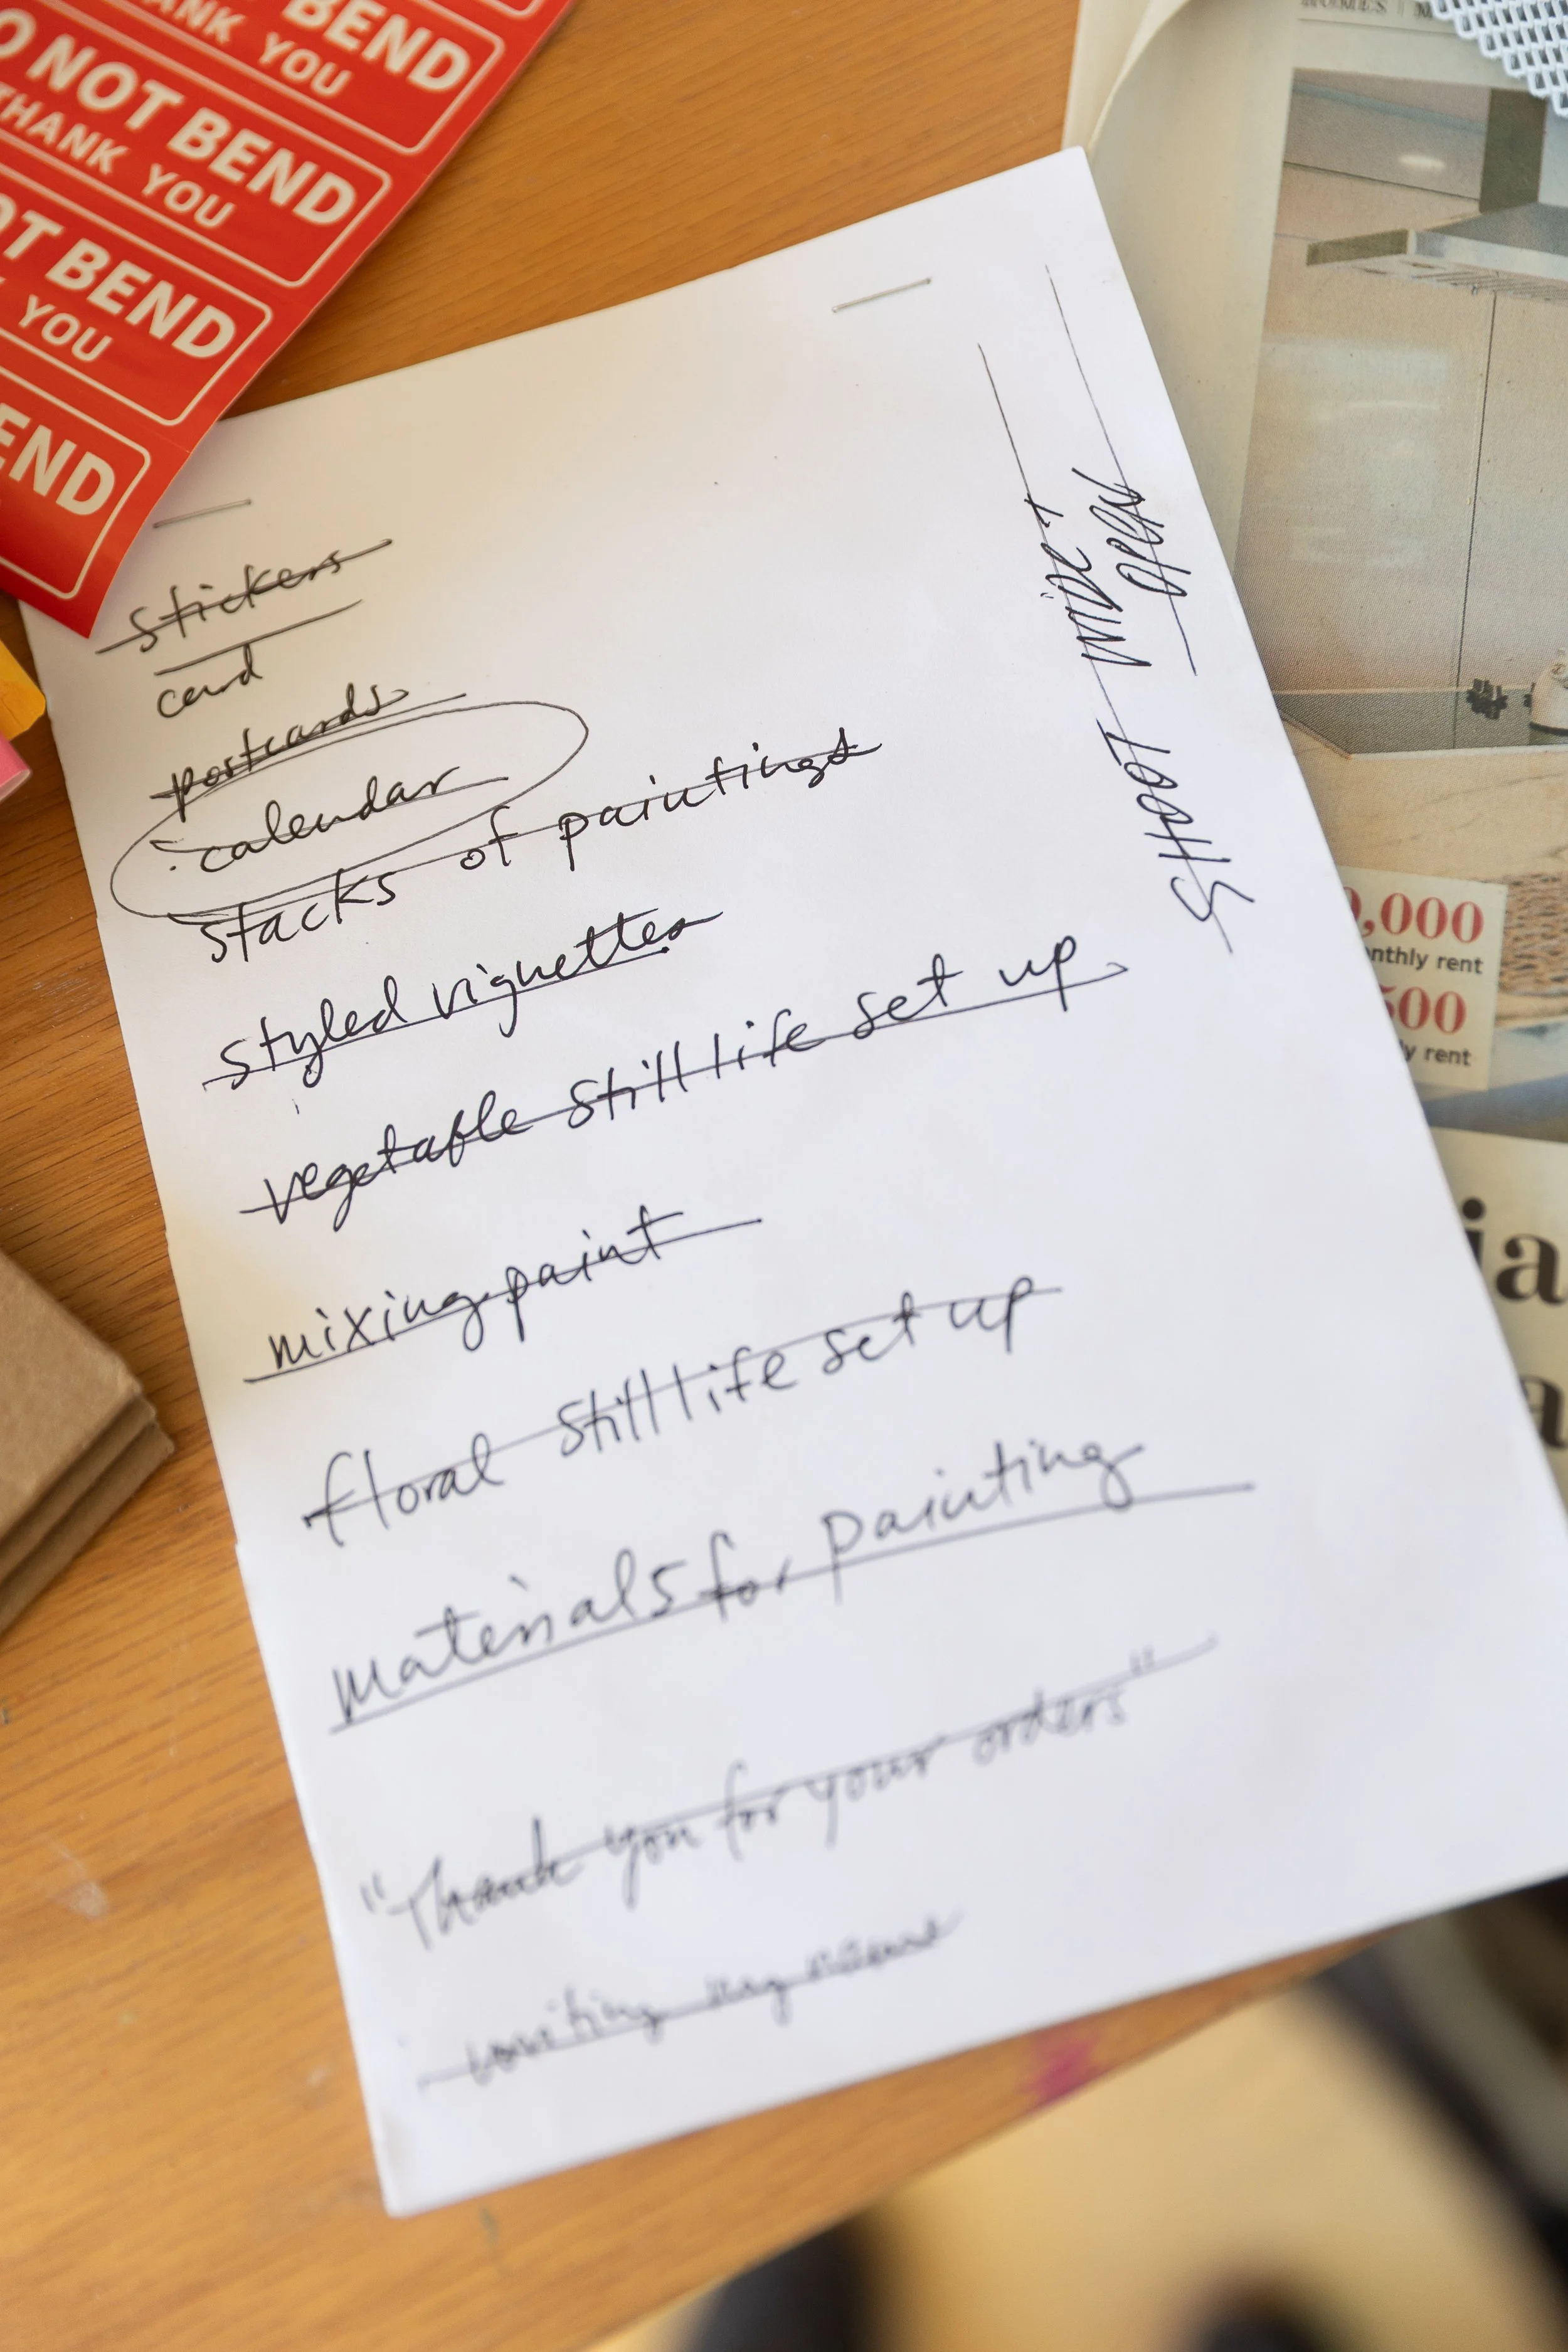 BEND
ANK YOU
O NOT BEND
THANK YOU
OT BEND
YOU
END
HOMES
stickers
card
postcards
calendar
stacks of paintings
styled vignettes
vegetable still life set up
mixing paint
floral still life set up
materials for painting
"Thank you for your orders"
SHOOT WIDE
OPEN
0,000
nthly rent
500
ly rent
ia
a